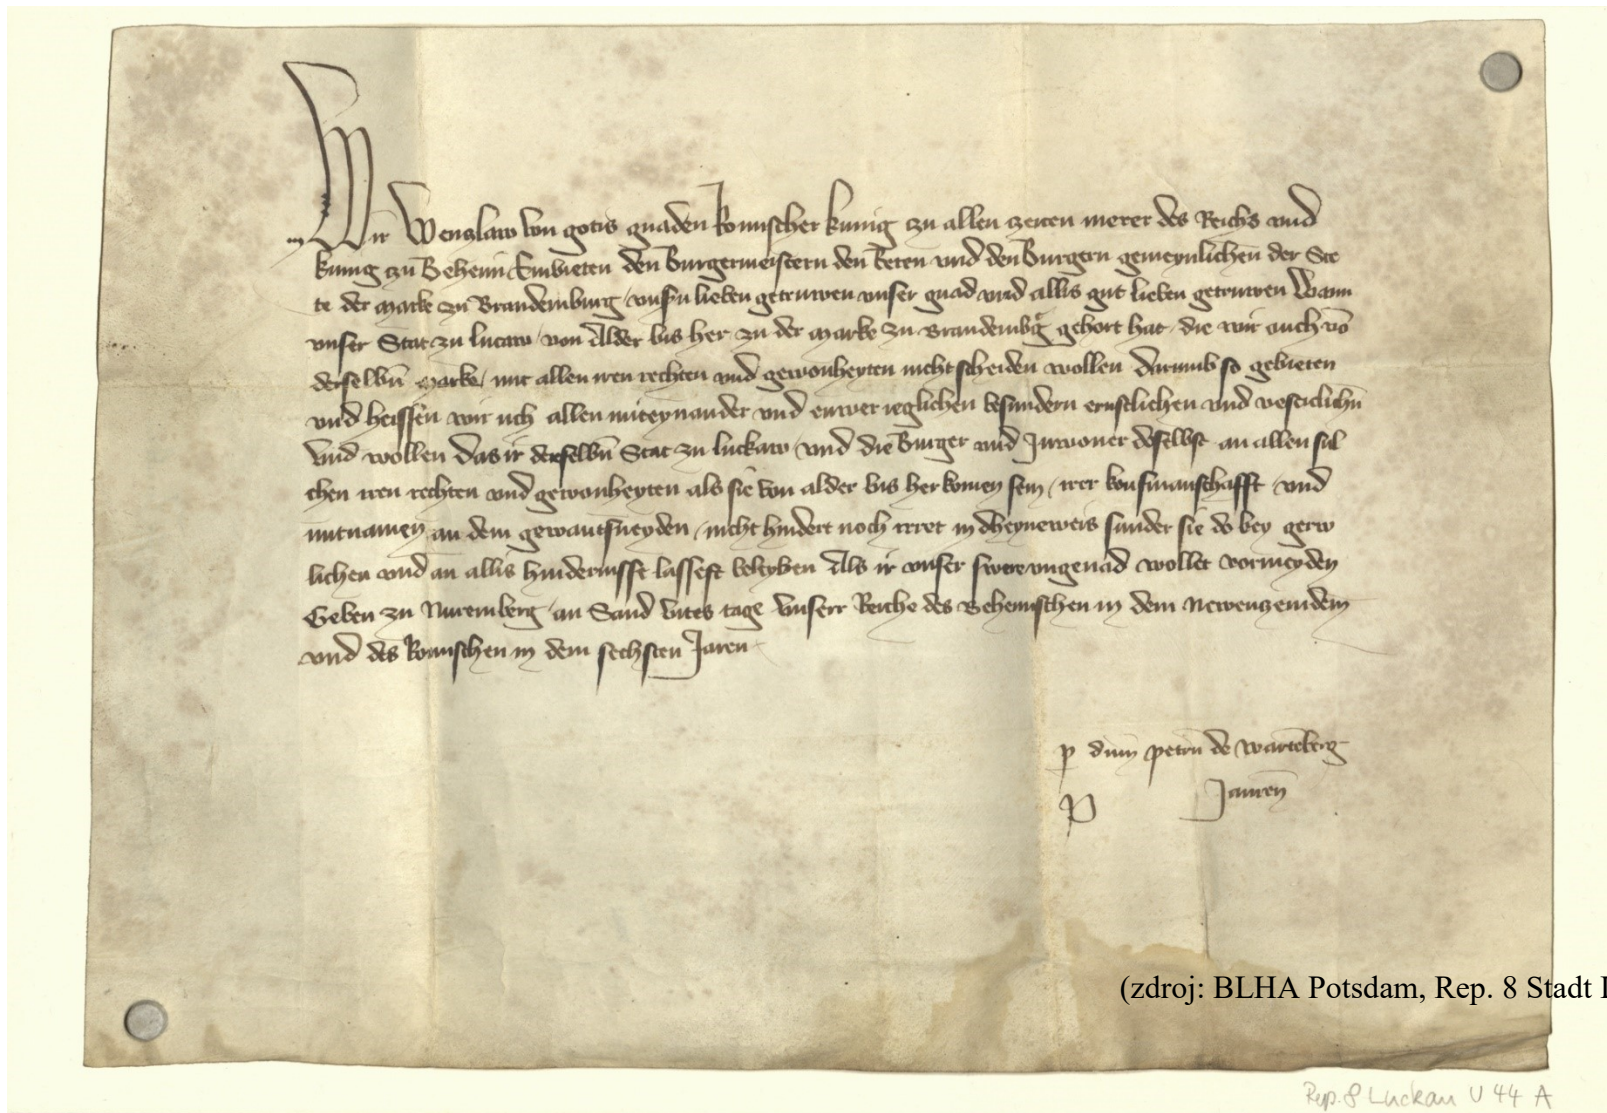 Wir Wenzlaw von gotis gnaden Romischer kunig zu allen zeiten merer des Reichs und
kunig zu Behem Embieten den Burgermeistern den Reten und den Burgern gemeynlichen der Ste
te der Marke zu Brandemburg unsn lieben getruwen unser gnad und allis gut lieben getruwen Wann
unser Stat zu Lucaw von Alder bis her zu der Marke zu Brandembg gehort hat die wir auch vo
derselbn Marke mit allen iren rechten und gewonheyten nicht scheiden wollen Darumb so gebieten
und heissen wir uch allen miteynander und euwer ieglichen besundern ernstlichen und vesticlichn
und wollen das ir derselbn Stat zu luckaw und die Burger und Inwoner doselbst an allen sul
chen iren rechten und gewonheyten als sie von alder bis her komen sein irer koufmanschafft und
mitnamen an dem gewantsneyden nicht hindert noch irret in dheyneweis sunder sie do bey geru
lichen und an allis hindernisse lasset beleyben Als ir unser swere ungenad wollet vormeyden
Geben zu Nuremberg an Sand Vites tage Unserr Reiche des Behemischen in dem Newenzendem
und des Romischen in dem sechsten Jaren
p dnm Petru de Wartenberg
Jauren
(zdroj: BLHA Potsdam, Rep. 8 Stadt
Rep. 8 Luckau U 44 A